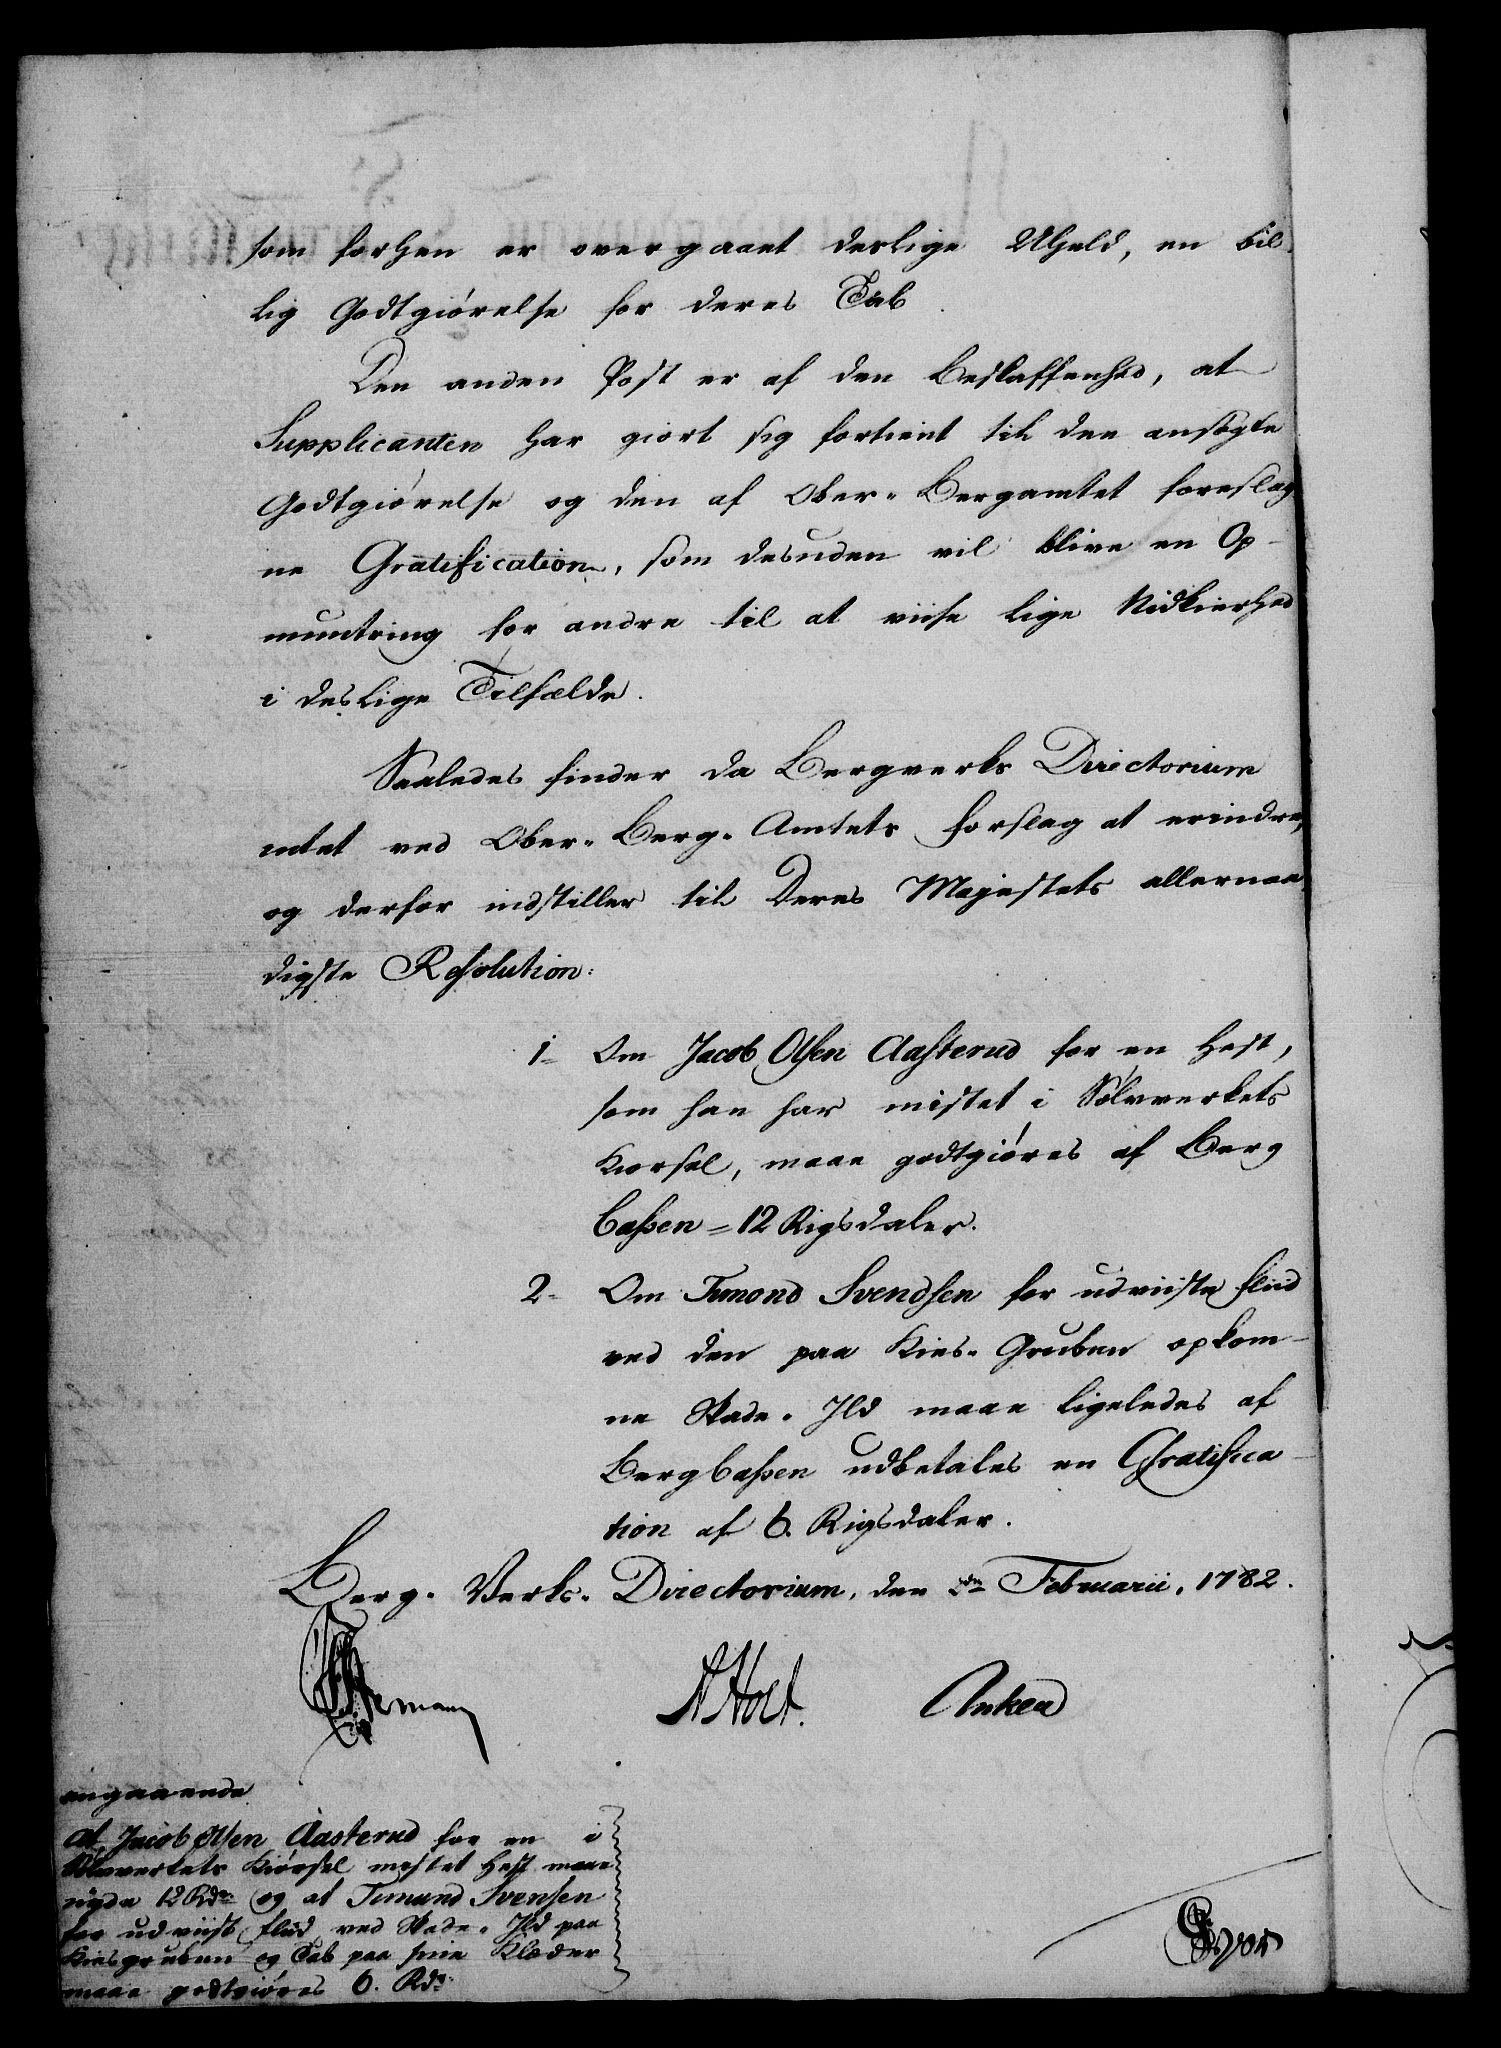 som forhen er overgaaet deslige Uheld, en bil-
lig Godtgiørelse for deres Tab
Den anden Post er af den Beskaffenhed, at
Supplicanten har giort sig fortient til den ansøgte
Godtgiørelse og den af Ober-Bergamtet foreslag
ne Gratification, som desuden vil blive en Op-
muntring for andre til at viise lige Nidkierhed
i deslige Tilfælde.
Saaledes finder da Bergverks Directorium
intet ved Ober-Berg-Amtets Forslag at erindre,
og derfor indstiller til Deres Majestets allernaa
digste Resolution:
1- Om Jacob Olsen Aasterud for en Hest,
som han har mistet i Sølvverkets
Kiørsel, maae godtgiøres af Berg
Cassen - 12 Rigsdaler.
2- Om Timond Svendsen for udviiste Fliid
ved den paa Kies-Gruben opkom-
ne Skade-Ild maae ligeledes af
Bergcassen udbetales en Gratifica-
tion af 6. Rigsdaler.
Berg-Verks-Directorium, den Februarii, 1782.
A Holt. Anker
angaaende
at Jacob Olsen Aasterud for en i
Sølvverkets Kiørsel mistet Hest maae
nyde 12 Rdr og at Timund Svensen
for udviist Fliid ved Skade-Ild paa
Kiesgruben og Tab paa sine Klæder
maae godtgiøres 6. Rdr.